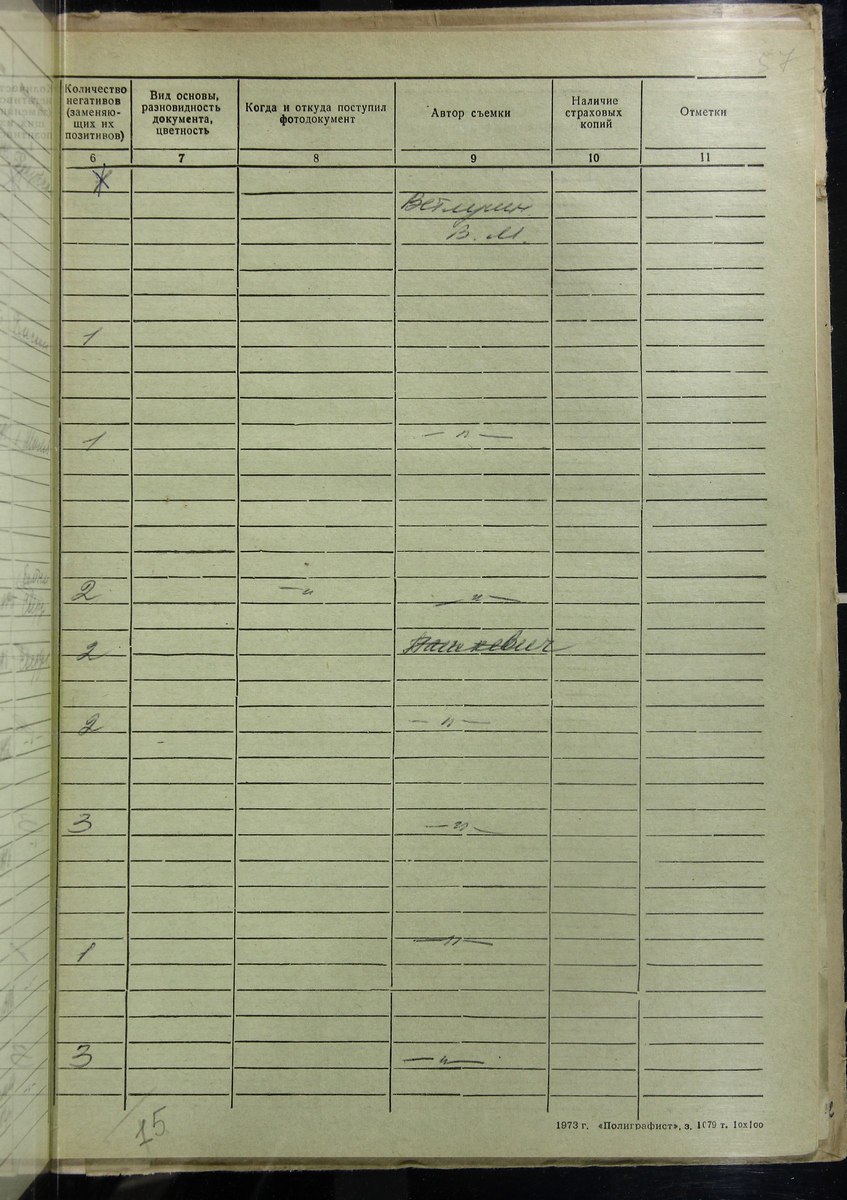 57
Количество
негативов
(заменяю-
щих их
позитивов)
Вид основы,
разновидность
документа,
цветность
Когда и откуда поступил
фотодокумент
Автор съемки
Наличие
страховых
копий
Отметки
6 7 8 9 10 11
Ветлугин
В. М.
1
1 — „ —
2 — „ — „ —
2 Пашкевич
2 — „ —
3 — „ —
1 — „ —
3 — „ —
15
1973 г. «Полиграфист», з. 1079 т. 10х100